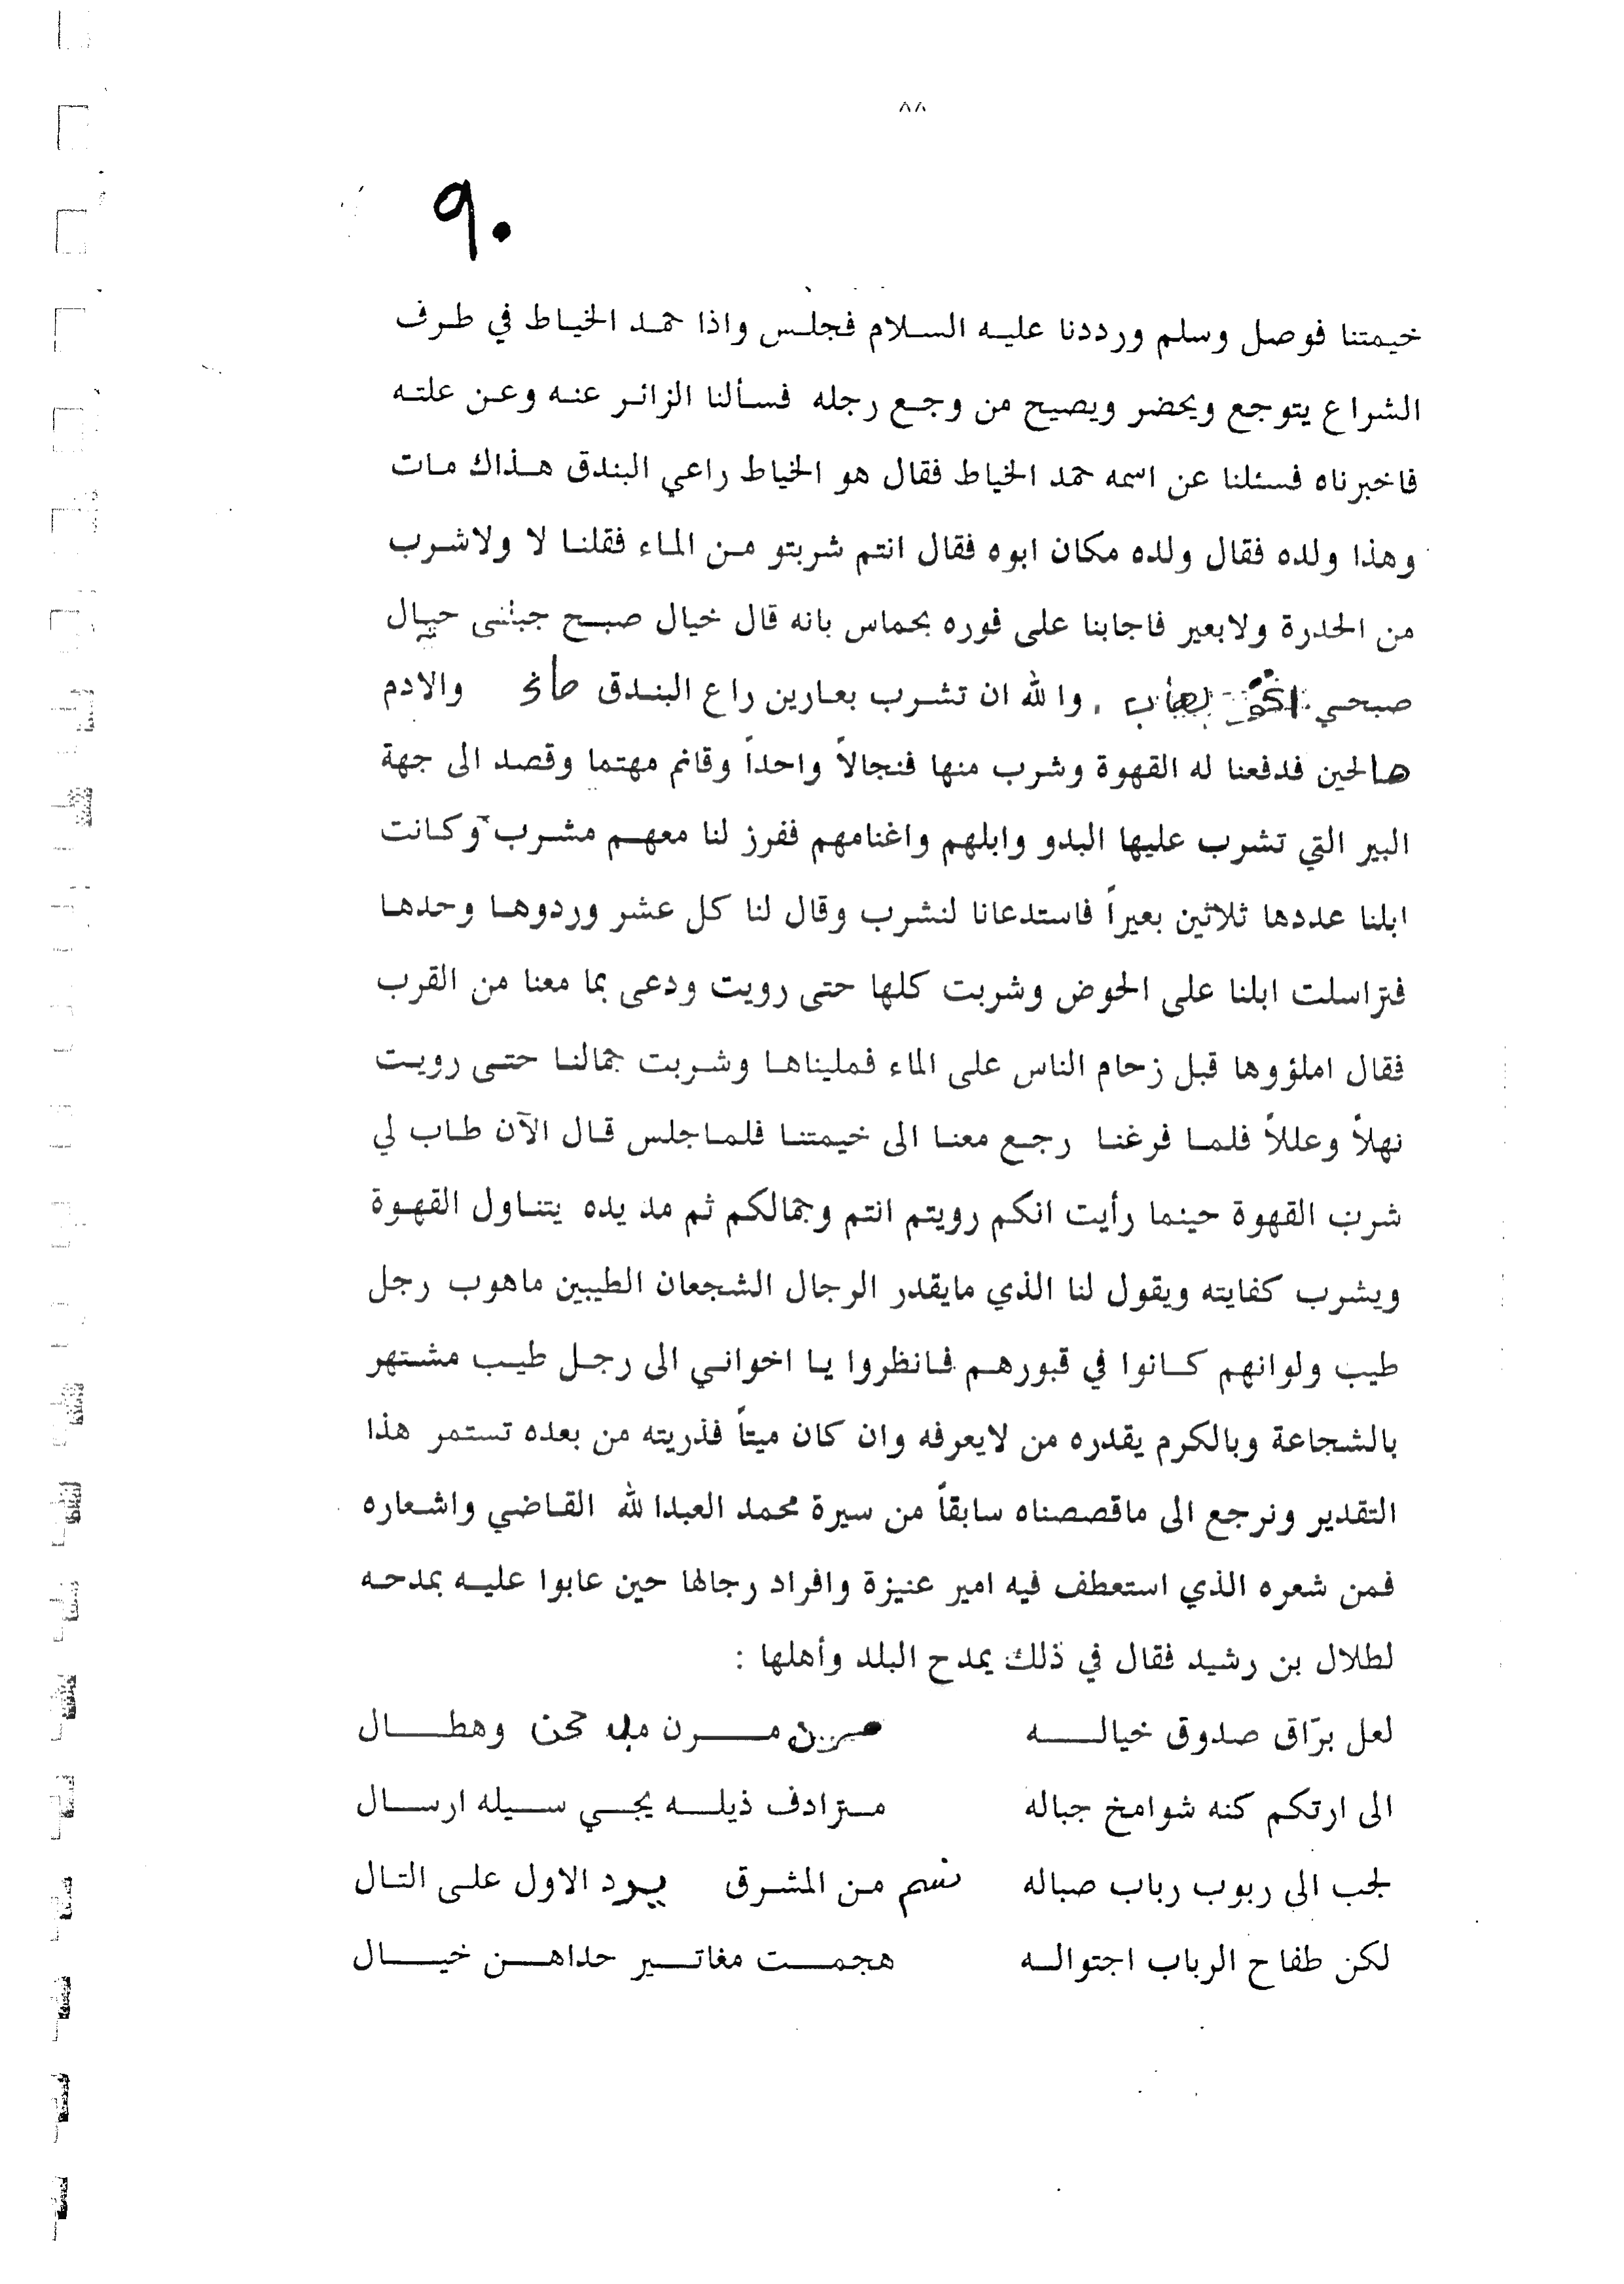 ٨٨
٩٠
خيمتنا فوصل وسلم ورددنا عليه السلام فجلس واذا حمد الخياط في طرف
الشراع يتوجع ويحضر ويصيح من وجع رجله فسألنا الزائر عنه وعن علته
فاخبرناه فسئلنا عن اسمه حمد الخياط فقال هو الخياط راعي البندق هذاك مات
وهذا ولده فقال ولده مكان ابوه فقال انتم شربتو من الماء فقلنا لا ولاشرب
من الحدرة ولابعير فاجابنا على فوره بحماس بانه قال خيال صبح
صبحي والله ان تشرب بعارين راع البندق والادم
صالحين فدفعنا له القهوة وشرب منها فنجالاً واحداً وقانم مهتما وقصد الى جهة
البير التي تشرب عليها البدو وابلهم واغنامهم ففرز لنا معهم مشرب وكانت
ابلنا عددها ثلاثين بعيراً فاستدعانا لنشرب وقال لنا كل عشر وردوها وحدها
فتراسلت ابلنا على الحوض وشربت كلها حتى رويت ودعى بما معنا من القرب
فقال املؤوها قبل زحام الناس على الماء فمليناها وشربت جمالنا حتى رويت
نهلاً وعللاً فلما فرغنا رجع معنا الى خيمتنا فلماجلس قال الآن طاب لي
شرب القهوة حينما رأيت انكم رويتم انتم وجمالكم ثم مد يده يتناول القهوة
ويشرب كفايته ويقول لنا الذي مايقدر الرجال الشجعان الطيبين ماهوب رجل
طيب ولوانهم كانوا في قبورهم فانظروا يا اخواني الى رجل طيب مشتهر
بالشجاعة وبالكرم يقدره من لايعرفه وان كان ميتاً فذريته من بعده تستمر هذا
التقدير ونرجع الى ماقصصناه سابقاً من سيرة محمد العبدالله القاضي واشعاره
فمن شعره الذي استعطف فيه امير عنيزة وافراد رجالها حين عابوا عليه بمدحه
لطلال بن رشيد فقال في ذلك يمدح البلد وأهلها :
لعل برّاق صدوق خياله مرن وهطال
الى ارتكم كنه شوامخ جباله مترادف ذيله يجي سيله ارسال
لجب الى ربوب رباب صباله نسم من المشرق يرد الاول على التال
لكن طفاح الرباب اجتواله هجمت مغاتير حداهن خيال